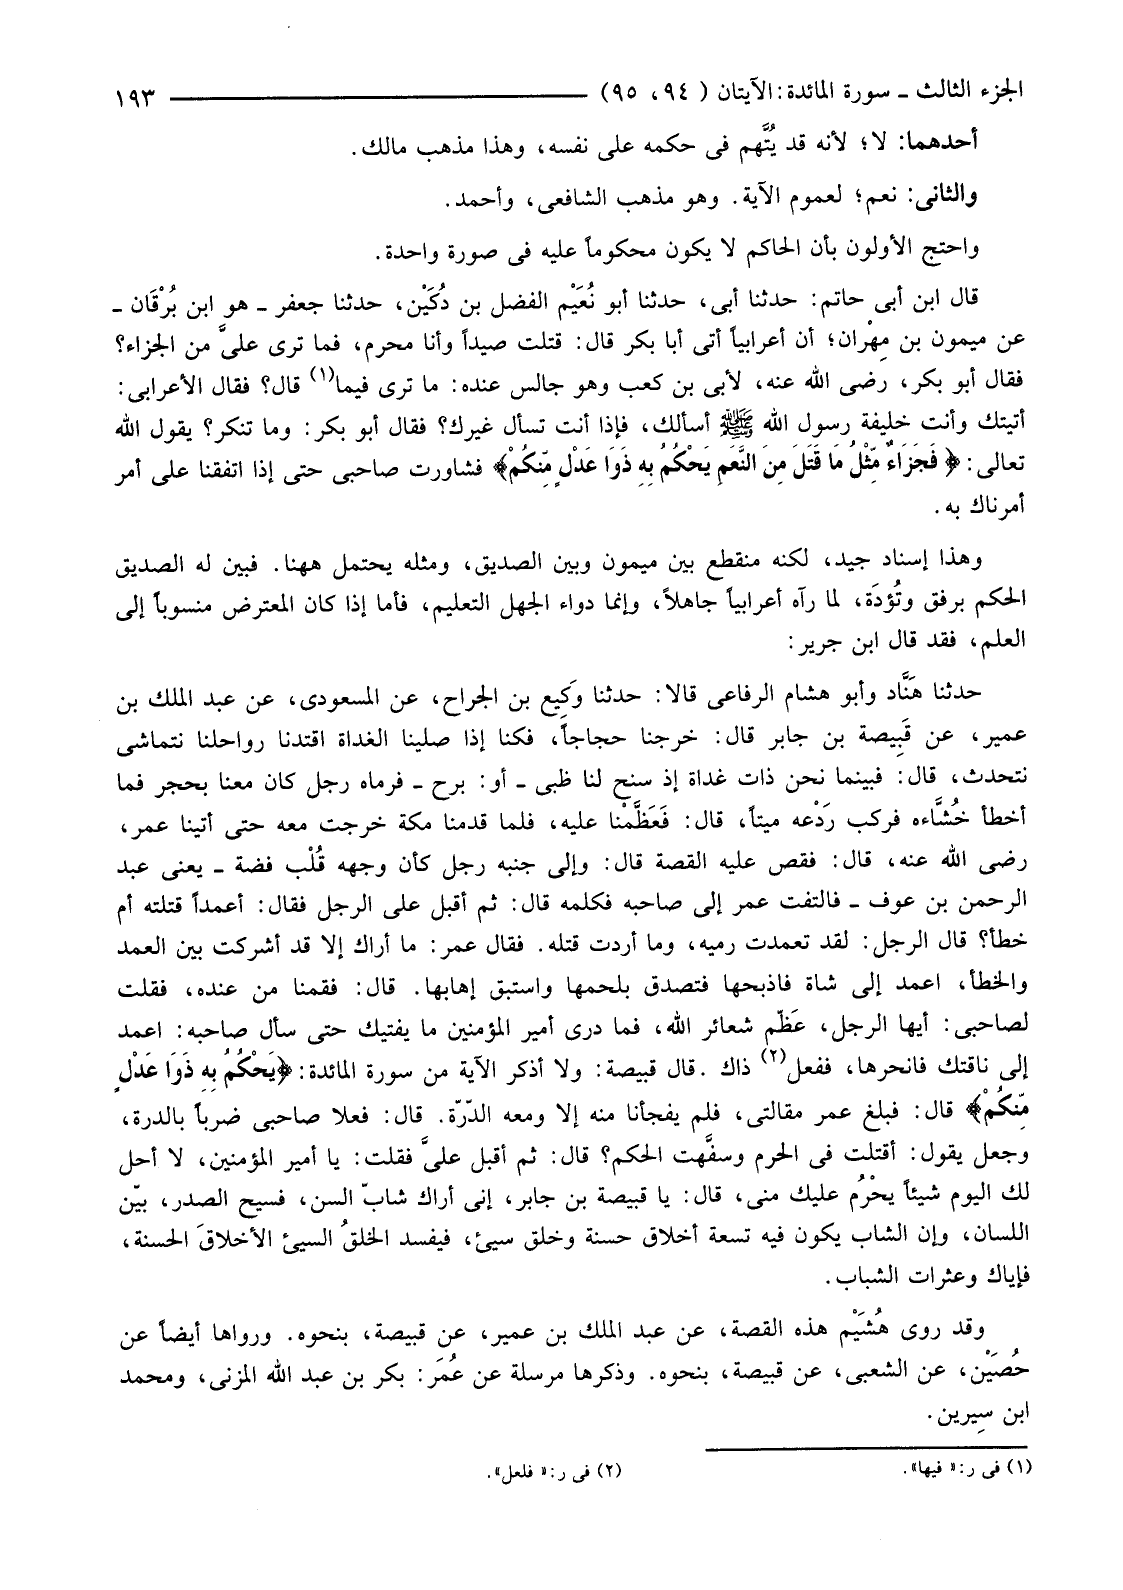 الجزء الثالث ـ سورة المائدة: الآيتان ( ٩٤، ٩٥) ١٩٣
أحدهما: لا؛ لأنه قد يُتَّهم فى حكمه على نفسه، وهذا مذهب مالك.
والثانى: نعم؛ لعموم الآية. وهو مذهب الشافعى، وأحمد.
واحتج الأولون بأن الحاكم لا يكون محكوماً عليه فى صورة واحدة.
قال ابن أبى حاتم: حدثنا أبى، حدثنا أبو نُعَيْم الفضل بن دُكَيْن، حدثنا جعفر ـ هو ابن بُرْقَان ـ
عن ميمون بن مِهْران؛ أن أعرابياً أتى أبا بكر قال: قتلت صيداً وأنا محرم، فما ترى علىَّ من الجزاء؟
فقال أبو بكر، رضى الله عنه، لأبى بن كعب وهو جالس عنده: ما ترى فيما(١) قال؟ فقال الأعرابى:
أتيتك وأنت خليفة رسول الله ﷺ أسألك، فإذا أنت تسأل غيرك؟ فقال أبو بكر: وما تنكر؟ يقول الله
تعالى: ﴿ فَجَزَاءٌ مِّثْلُ مَا قَتَلَ مِنَ النَّعَمِ يَحْكُمُ بِهِ ذَوَا عَدْلٍ مِّنكُمْ﴾ فشاورت صاحبى حتى إذا اتفقنا على أمر
أمرناك به.
وهذا إسناد جيد، لكنه منقطع بين ميمون وبين الصديق، ومثله يحتمل ههنا. فبين له الصديق
الحكم برفق وتُؤدَة، لما رآه أعرابياً جاهلاً، وإنما دواء الجهل التعليم، فأما إذا كان المعترض منسوباً إلى
العلم، فقد قال ابن جرير:
حدثنا هَنَّاد وأبو هشام الرفاعى قالا: حدثنا وَكِيع بن الجراح، عن المسعودى، عن عبد الملك بن
عمير، عن قَبِيصة بن جابر قال: خرجنا حجاجاً، فكنا إذا صلينا الغداة اقتدنا رواحلنا نتماشى
نتحدث، قال: فبينما نحن ذات غداة إذ سنح لنا ظبى ـ أو: برح ـ فرماه رجل كان معنا بحجر فما
أخطأ خُشَّاءه فركب رَدْعه ميتاً، قال: فَعَظَّمْنا عليه، فلما قدمنا مكة خرجت معه حتى أتينا عمر،
رضى الله عنه، قال: فقص عليه القصة قال: وإلى جنبه رجل كأن وجهه قُلْب فضة ـ يعنى عبد
الرحمن بن عوف ـ فالتفت عمر إلى صاحبه فكلمه قال: ثم أقبل على الرجل فقال: أعمداً قتلته أم
خطأ؟ قال الرجل: لقد تعمدت رميه، وما أردت قتله. فقال عمر: ما أراك إلا قد أشركت بين العمد
والخطأ، اعمد إلى شاة فاذبحها فتصدق بلحمها واستبق إهابها. قال: فقمنا من عنده، فقلت
لصاحبى: أيها الرجل، عَظّم شعائر الله، فما درى أمير المؤمنين ما يفتيك حتى سأل صاحبه: اعمد
إلى ناقتك فانحرها، ففعل(٢) ذاك .قال قبيصة: ولا أذكر الآية من سورة المائدة: ﴿يَحْكُمُ بِهِ ذَوَا عَدْلٍ
مِّنكُمْ﴾ قال: فبلغ عمر مقالتى، فلم يفجأنا منه إلا ومعه الدّرّة. قال: فعلا صاحبى ضرباً بالدرة،
وجعل يقول: أقتلت فى الحرم وسفَّهت الحكم؟ قال: ثم أقبل علىَّ فقلت: يا أمير المؤمنين، لا أحل
لك اليوم شيئاً يحْرُم عليك منى، قال: يا قبيصة بن جابر، إنى أراك شابّ السن، فسيح الصدر، بيّن
اللسان، وإن الشاب يكون فيه تسعة أخلاق حسنة وخلق سيئ، فيفسد الخلقُ السيئ الأخلاقَ الحسنة،
فإياك وعثرات الشباب.
وقد روى هُشَيْم هذه القصة، عن عبد الملك بن عمير، عن قبيصة، بنحوه. ورواها أيضاً عن
حُصَيْن، عن الشعبى، عن قبيصة، بنحوه. وذكرها مرسلة عن عُمَر: بكر بن عبد الله المزنى، ومحمد
ابن سِيرين.
(١) فى ر:« فيها». (٢) فى ر:« فلعل».